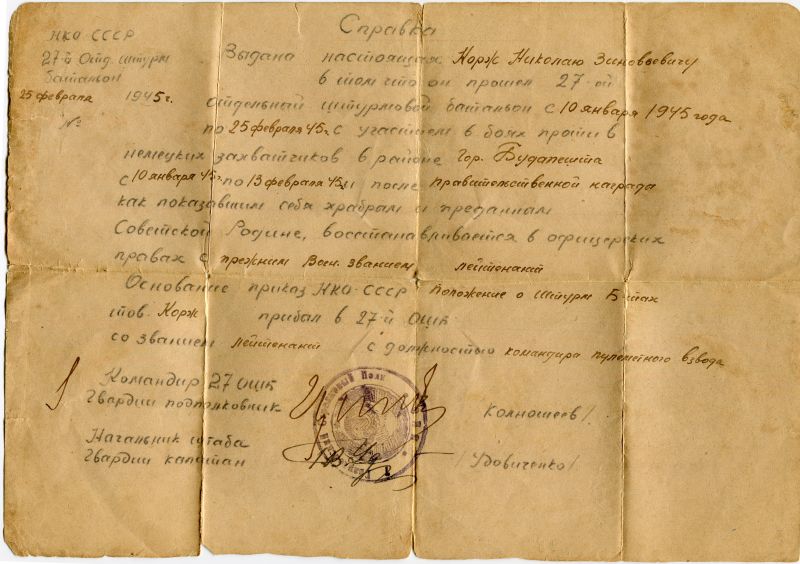 Справка
НКО-СССР
27-й Отд. штурм
батальон
25 февраля 1945 г.
№
Выдана настоящая Корж Николаю Зиновьевичу
в том что он прошел 27-ой
отдельный штурмовой батальон с 10 января 1945 года
по 25 февраля 45 г. с участием в боях против
немецких захватчиков в районе гор. Будапешта
с 10 января 45 г. по 13 февраля 45 и после правительственной награда
как показавшим себя храбрам и преданнам
Советской Родине, восстанавливается в офицерских
правах с прежним Воин. званием лейтенант
Основание приказ НКО-СССР Положение о штурм Б-тах
тов. Корж прибал в 27-й ОШБ
со званием лейтенант с должностью командира пулеметного взвода
Командир 27 ОШБ
Гвардии подполковник Колношеев/
Начальник штаба
Гвардии капитан /Удовиченко/
Полк